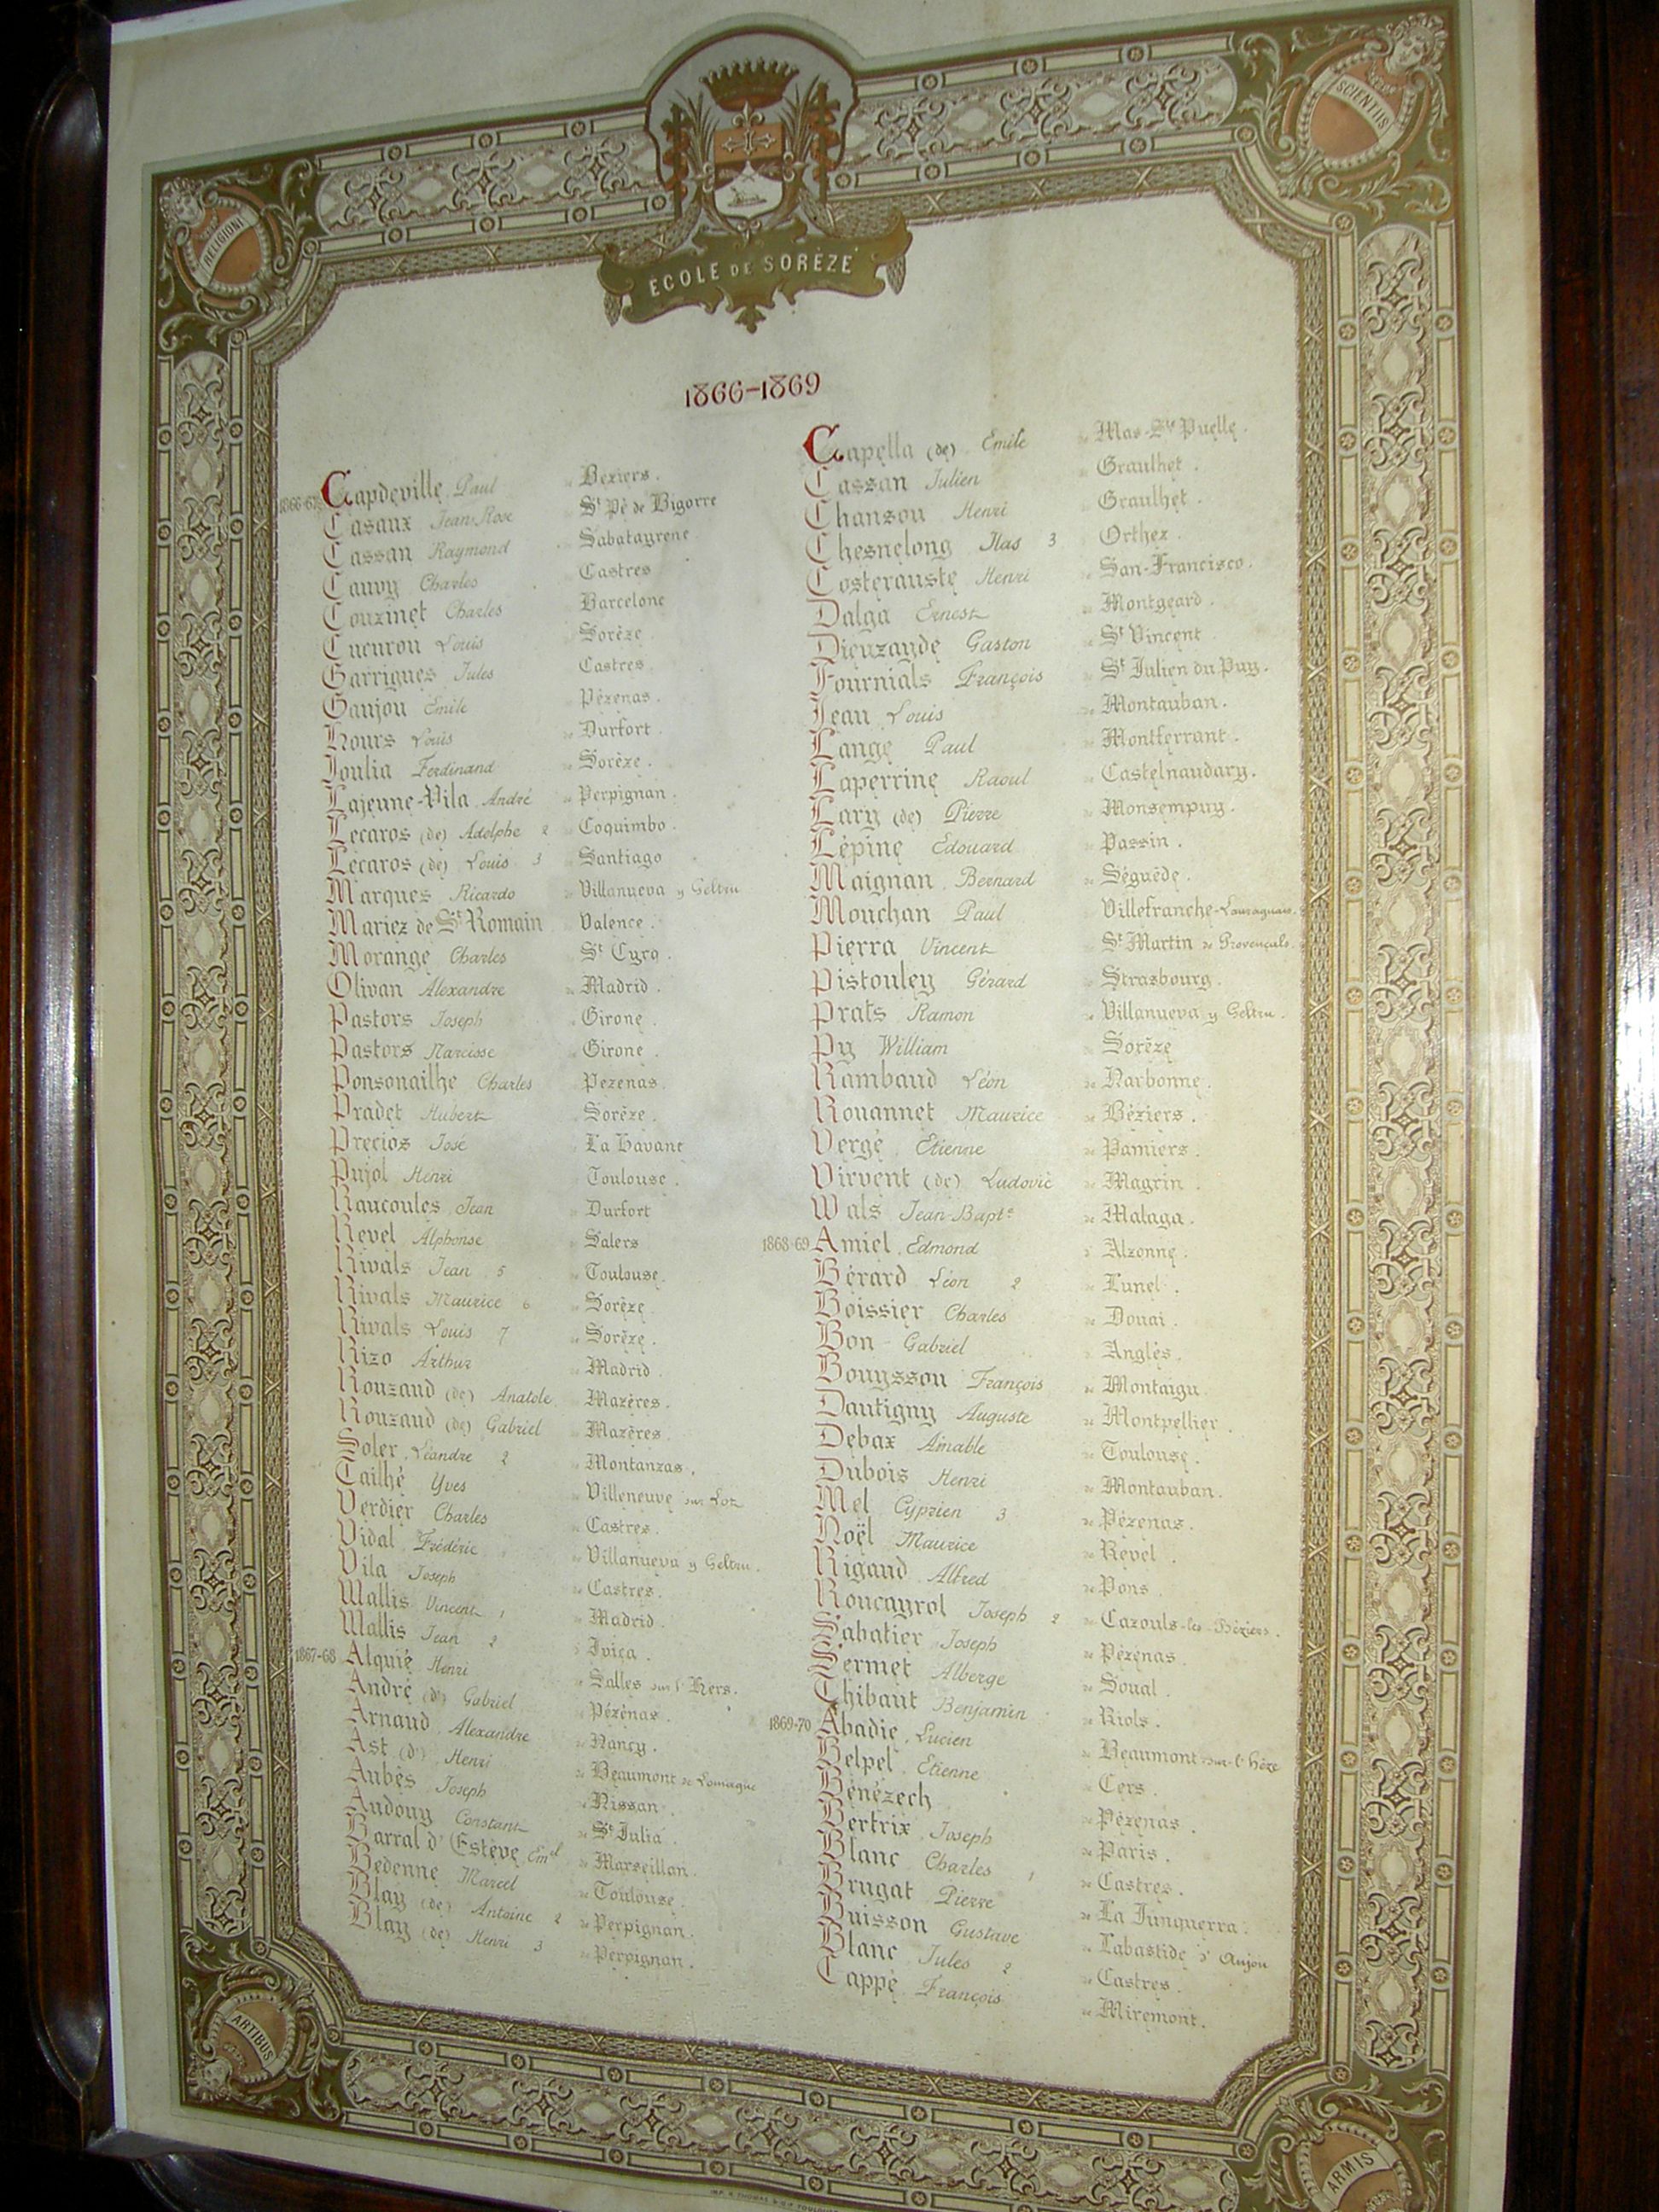 RELIGIONI
SCIENTIIS
ÉCOLE DE SORÈZE
1866-1869
1866-67 Capdeville Paul de Béziers.
Casaux Jean-Rose St Pé de Bigorre
Cassan Raymond Sabatayrene
Cauvy Charles Castres
Couzinet Charles Barcelone
Cucurou Louis Sorèze
Garrigues Jules Castres.
Gaujou Emile Pézenas.
Hours Louis de Durfort.
Joulia Ferdinand de Sorèze.
Lajeune-Vila André de Perpignan.
Lecaros (de) Adolphe 2 de Coquimbo.
Lecaros (de) Louis 3 Santiago
Marques Ricardo de Villanueva y Geltru
Mariez de St Romain Valence.
Morange Charles St Cyrq.
Olivan Alexandre de Madrid.
Pastors Joseph Girone.
Pastors Narcisse Girone.
Ponsonailhe Charles Pezenas.
Pradet Hubert Sorèze.
Précios José La Havane
Pujol Henri Toulouse.
Raucoules Jean Durfort
Revel Alphonse Salers
Rivals Jean 5 de Toulouse.
Rivals Maurice 6 de Sorèze
Rivals Louis 7 de Sorèze.
Rizo Arthur de Madrid.
Rouzaud (de) Anatole de Mazères.
Rouzaud (de) Gabriel de Mazères
Soler Léandre 2 de Montanzas.
Tailhé Yves de Villeneuve sur Lot
Verdier Charles de Castres.
Vidal Frédéric de Villanueva y Geltru.
Vila Joseph de Castres.
Wallis Vincent 1 de Madrid.
Wallis Jean 2 d' Iviça.
1867-68 Alquié Henri de Salles sur l'Hers.
André (d') Gabriel de Pézènas.
Arnaud Alexandre de Nancy.
Ast (d') Henri de Beaumont de Lomagne
Aubès Joseph de Nissan.
Audouy Constant de St Julia.
Barral d'Estève Emel de Marseillan.
Bedenne Marcel de Toulouse.
Blay (de) Antoine 2 de Perpignan.
Blay (de) Henri 3 de Perpignan.
Capella (de) Emile de Mas-Stes Puelle.
Cassan Julien Graulhet.
Chanson Henri Graulhet.
Chesnelong Ilas 3 Orthez.
Costerauste Henri de San-Francisco.
Dalga Ernest de Montgeard.
Dieuzayde Gaston St Vincent
Fournials François St Julien du Puy.
Jean Louis de Montauban.
Lange Paul de Montferrant.
Laperrine Raoul de Castelnaudary.
Lary (de) Pierre de Monsempuy.
Lépine Edouard de Passin.
Maignan Bernard de Séguède.
Mouchan Paul Villefranche-Lauragnais.
Pierra Vincent St Martin de Provençals.
Pistouley Gérard Strasbourg.
Prats Ramon de Villanueva y Geltru.
Py William de Sorèze
Rambaud Léon de Narbonne.
Rouannet Maurice de Béziers.
Vergé Etienne de Pamiers.
Virvent (de) Ludovic de Magrin.
Wals Jean-Bapte de Malaga.
1868-69 Amiel Edmond d' Alzonne.
Bérard Léon 2 de Lunel.
Boissier Charles de Douai.
Bon Gabriel d' Anglès.
Bouysson François de Montaigu
Dautigny Auguste de Montpellier.
Debax Aimable de Toulouse.
Dubois Henri de Montauban.
Mel Cyprien 3 de Pézenas.
Noël Maurice de Revel.
Rigaud Alfred de Pons.
Roucayrol Joseph 2 de Cazouls-les-Béziers.
Sabatier Joseph de Pézenas.
Sermet Alberge de Soual.
Thibaut Benjamin de Riols.
1869-70 Abadie Lucien de Beaumont sur-l'Hèze
Belpel Etienne de Cers.
Bénézech de Pézenas.
Bertrix Joseph de Paris.
Blanc Charles 1 de Castres.
Brugat Pierre de La Junquerra.
Buisson Gustave de Labastide d'Anjou
Blanc Jules 2 de Castres.
Cappé François de Miremont.
ARTIBUS
ARMIS